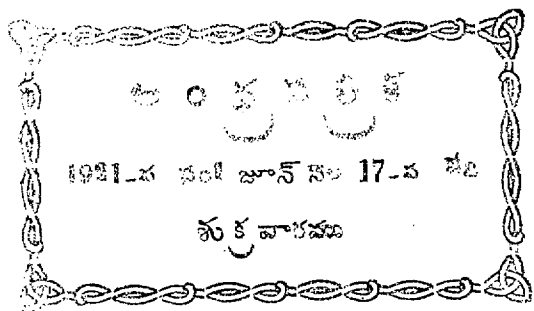 ఆంధ్రపత్రిక
1921-వ సం॥ జూన్ నెల 17-వ తేది
శుక్రవారము